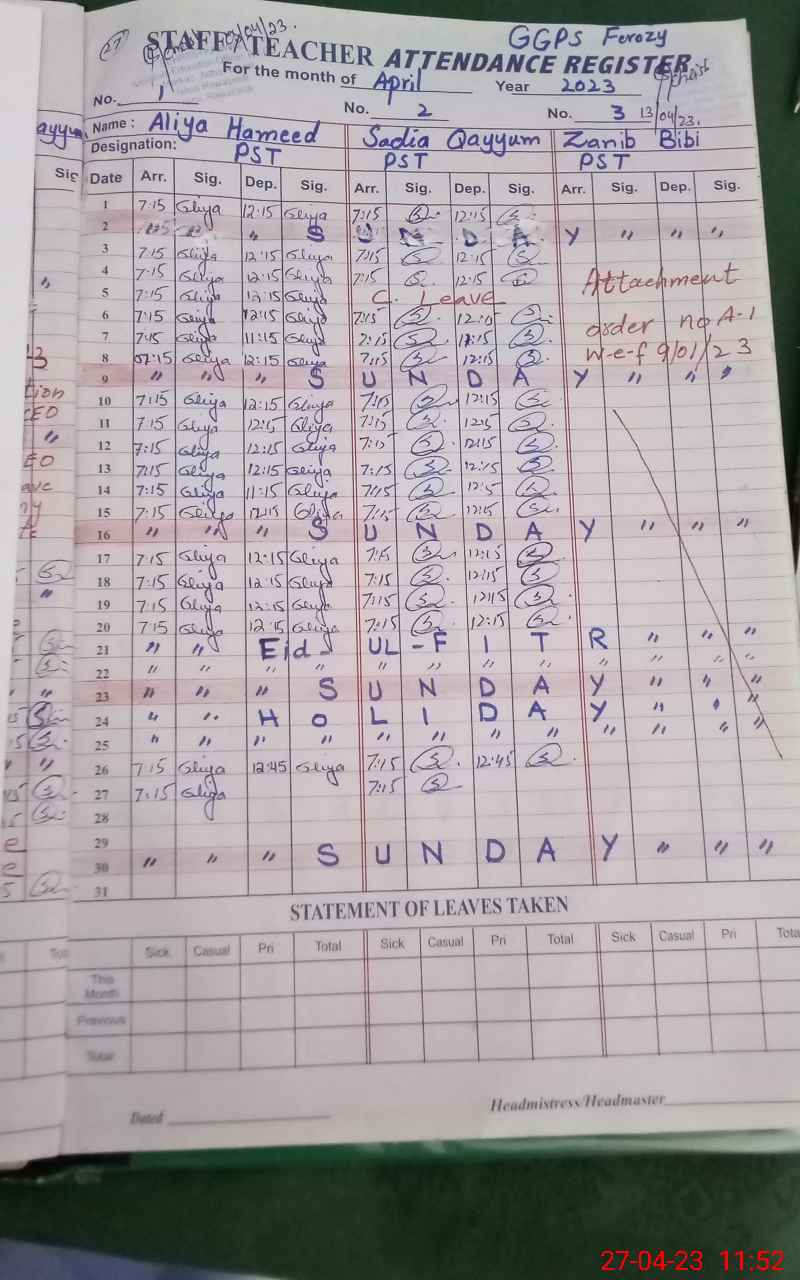 27
04/04/23.
GGPS Ferozy
STAFF / TEACHER ATTENDANCE REGISTER
For the month of April Year 2023
No. 1 No. 2 No. 3 13/04/23.
Name : Aliya Hameed Sadia Qayyum Zanib Bibi
Designation: PST PST PST
Date Arr. Sig. Dep. Sig. Arr. Sig. Dep. Sig. Arr. Sig. Dep. Sig.
1 7:15 Aliya 12:15 Aliya 7:15 12:15
2 " S U N D A Y " " "
3 7:15 Aliya 12:15 Aliya 7:15 12:15
4 7:15 Aliya 12:15 Aliya 7:15 12:15 Attachment
5 7:15 Aliya 12:15 Aliya C. Leave
6 7:15 Aliya 12:15 Aliya 7:15 12:15 order no A-1
7 7:15 Aliya 11:15 Aliya 7:15 11:15
8 07:15 Aliya 12:15 Aliya 7:15 12:15 w-e-f 9/01/23
9 " " " S U N D A Y " " "
10 7:15 Aliya 12:15 Aliya 7:15 12:15
11 7:15 Aliya 12:15 Aliya 7:15 12:15
12 7:15 Aliya 12:15 Aliya 7:15 12:15
13 7:15 Aliya 12:15 Aliya 7:15 12:15
14 7:15 Aliya 11:15 Aliya 7:15 12:15
15 7:15 Aliya 12:15 Aliya 7:15 12:15
16 " " " S U N D A Y " " "
17 7:15 Aliya 12:15 Aliya 7:15 12:15
18 7:15 Aliya 12:15 Aliya 7:15 12:15
19 7:15 Aliya 12:15 Aliya 7:15 12:15
20 7:15 Aliya 12:15 Aliya 7:15 12:15
21 " " Eid - UL - F I T R " " "
22 " " " " " " " " " " " "
23 " " " S U N D A Y " " "
24 " " H O L I D A Y " " "
25 " " " " " " " " " " " "
26 7:15 Aliya 12:45 Aliya 7:15 12:45
27 7:15 Aliya 7:15
28
29
30 " " " S U N D A Y " " "
31
STATEMENT OF LEAVES TAKEN
Sick Casual Pri Total Sick Casual Pri Total Sick Casual Pri Tota
This Month
Previous
Total
Dated
Headmistress/Headmaster
27-04-23 11:52